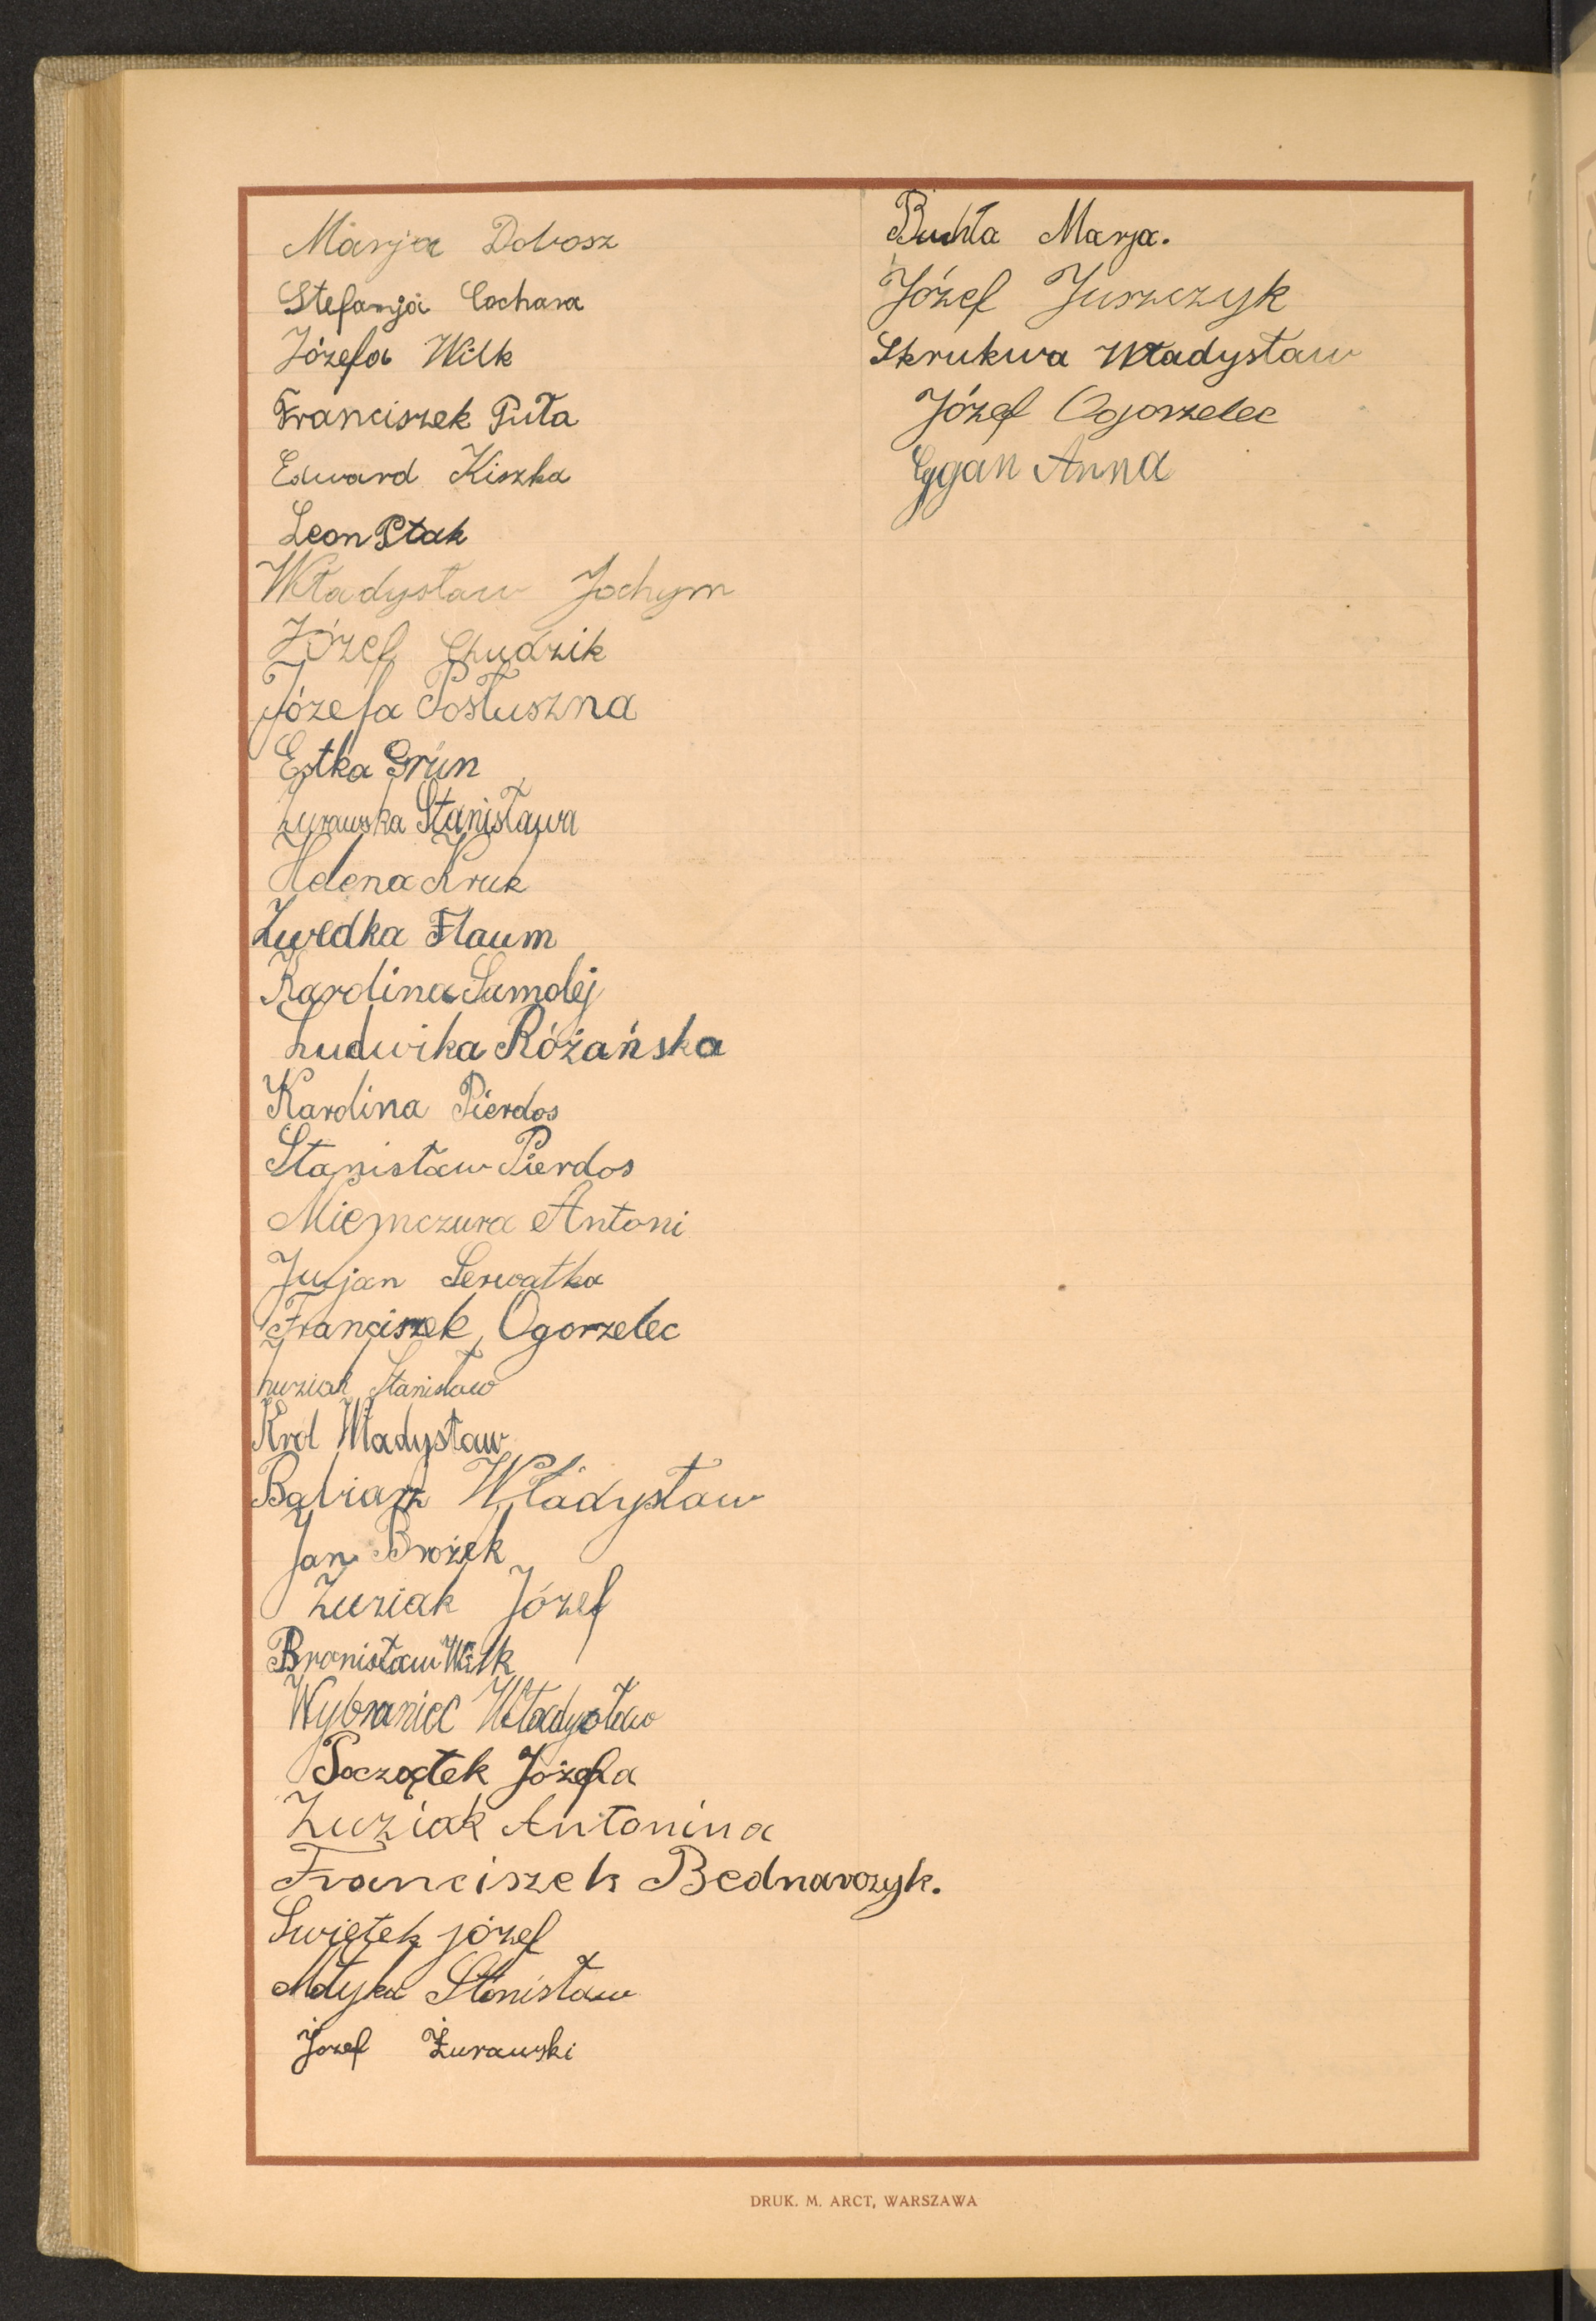 Marja Dobosz
Stefanja Cochara
Józefa Wilk
Franciszek Puła
Edward Kiszka
Leon Ptak
Władysław Jochym
Józef Chudzik
Józefa Posłuszna
Estka Grün
Żurawska Stanisława
Helena Kruk
Flaum
Karolina Samolej
Ludwika Różańska
Karolina Pierdos
Stanisław Pierdos
Miemczura Antoni
Juljan Serwatka
Franciszek Ogorzelec
Luziak Stanisław
Krol Władysław
Babiarz Władysław
Jan Brożek
Luziak Józef
Bronisław Wilk
Wybraniec Władysław
Początek Józefa
Luziak Antonina
Franciszek Bednarczyk.
Swiętek józef
Motyka Stanisław
Józef Żurawski
Buchta Marja.
Józef Juszczyk
Skrukwa Władysław
Józef Ogorzelec
Cygan Anna
DRUK. M. ARCT, WARSZAWA